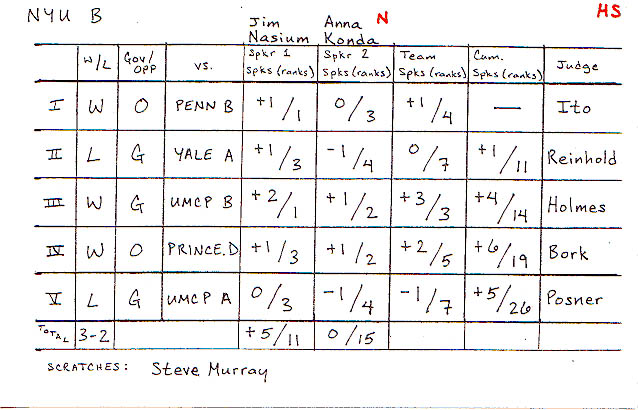 NYU B Jim Nasium Anna Konda N HS
W/L Gov/OPP vs. Spkr 1 Spks (ranks) Spkr 2 Spks (ranks) Team Spks (ranks) Cum. Spks (ranks) Judge
I W O PENN B +1/1 0/3 +1/4 — Ito
II L G YALE A +1/3 -1/4 0/7 +1/11 Reinhold
III W G UMCP B +2/1 +1/2 +3/3 +4/14 Holmes
IV W O PRINCE.D +1/3 +1/2 +2/5 +6/19 Bork
V L G UMCP A 0/3 -1/4 -1/7 +5/26 Posner
TOTAL 3-2 +5/11 0/15
SCRATCHES: Steve Murray